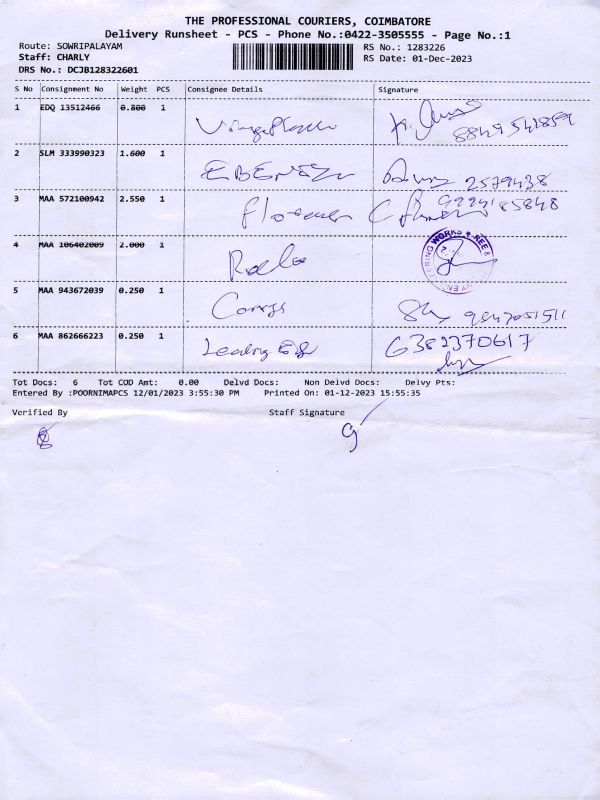 THE PROFESSIONAL COURIERS, COIMBATORE
Delivery Runsheet - PCS - Phone No.:0422-3505555 - Page No.:1
Route: SOWRIPALAYAM
RS No.: 1283226
Staff: CHARLY
RS Date: 01-Dec-2023
DRS No.: DCJB128322601
S No Consignment No Weight PCS Consignee Details Signature
1 EDQ 13512466 0.800 1
2 SLM 333990323 1.600 1
EBENEZ
2579438
3 MAA 572100942 2.550 1
4 MAA 106402009 2.000 1
WORKS
5 MAA 943672039 0.250 1
6 MAA 862666223 0.250 1
Leading
6382370617
Tot Docs: 6 Tot COD Amt: 0.00 Delvd Docs: Non Delvd Docs: Delvy Pts:
Entered By :POORNIMAPCS 12/01/2023 3:55:30 PM Printed On: 01-12-2023 15:55:35
Verified By Staff Signature